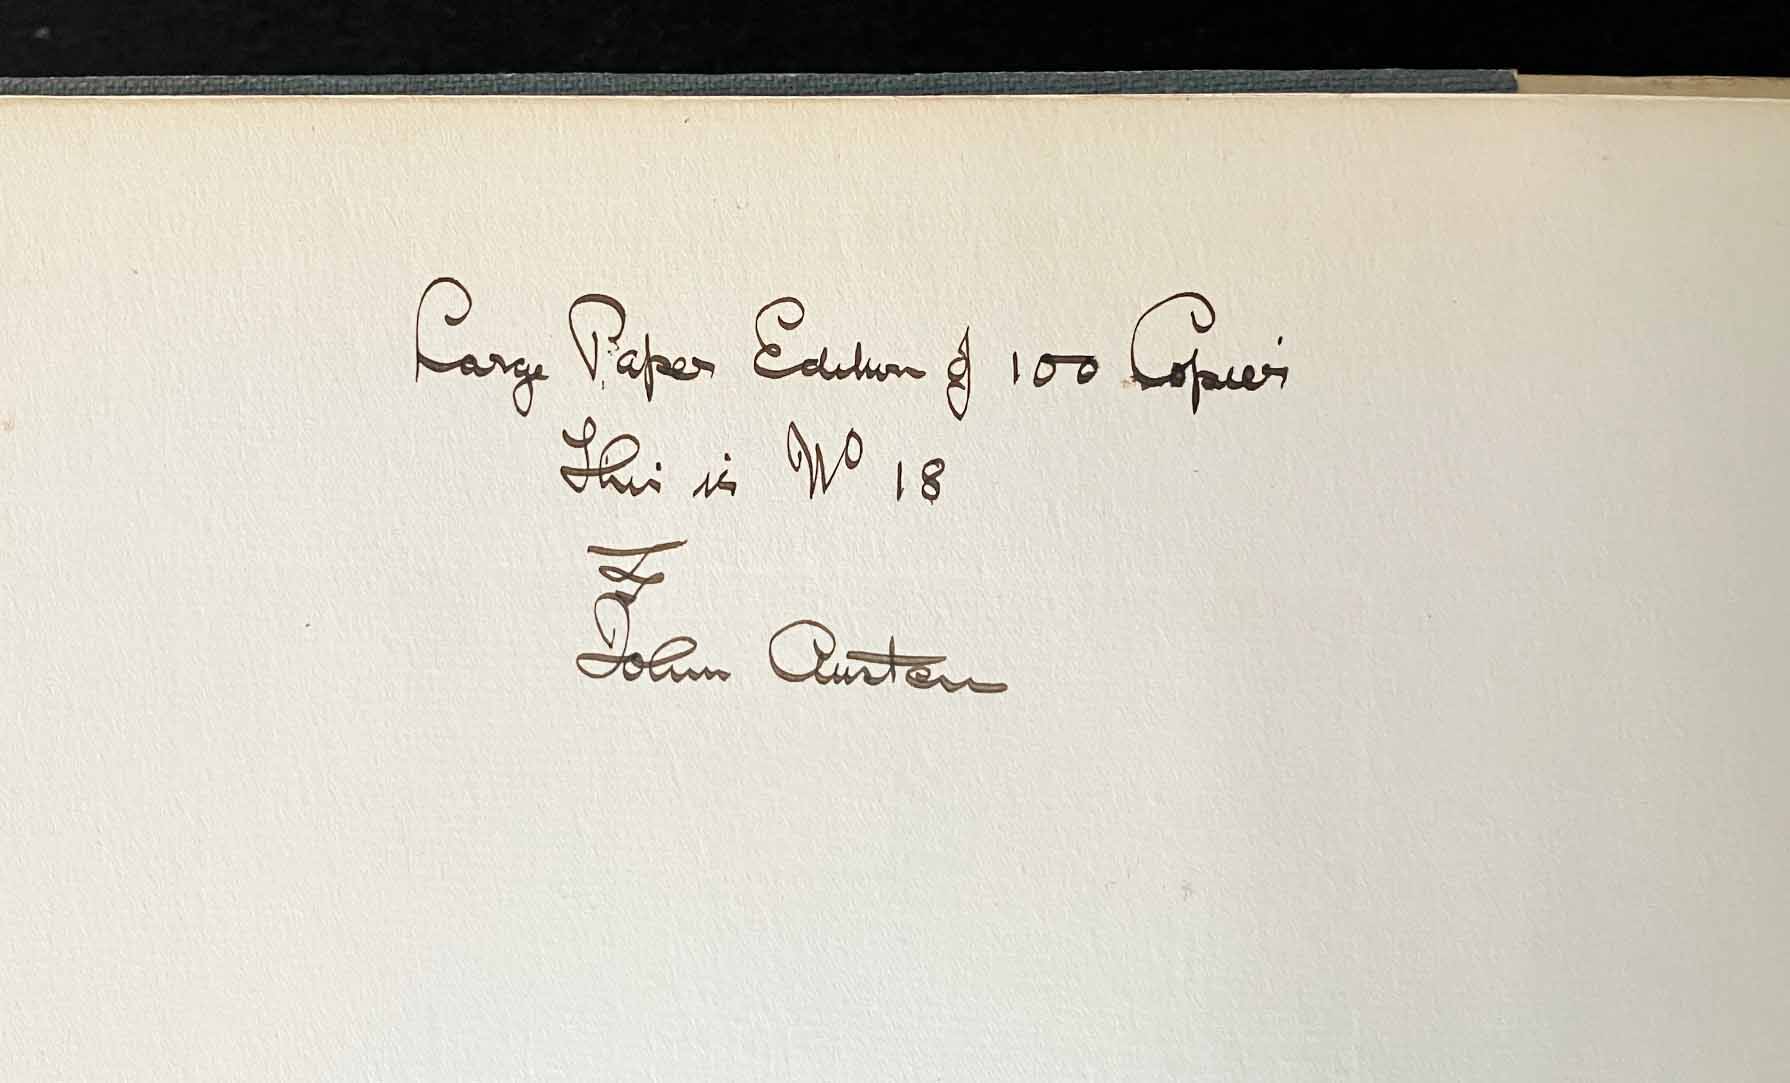 Large Paper Edition of 100 Copies
This is No 18
John Austen